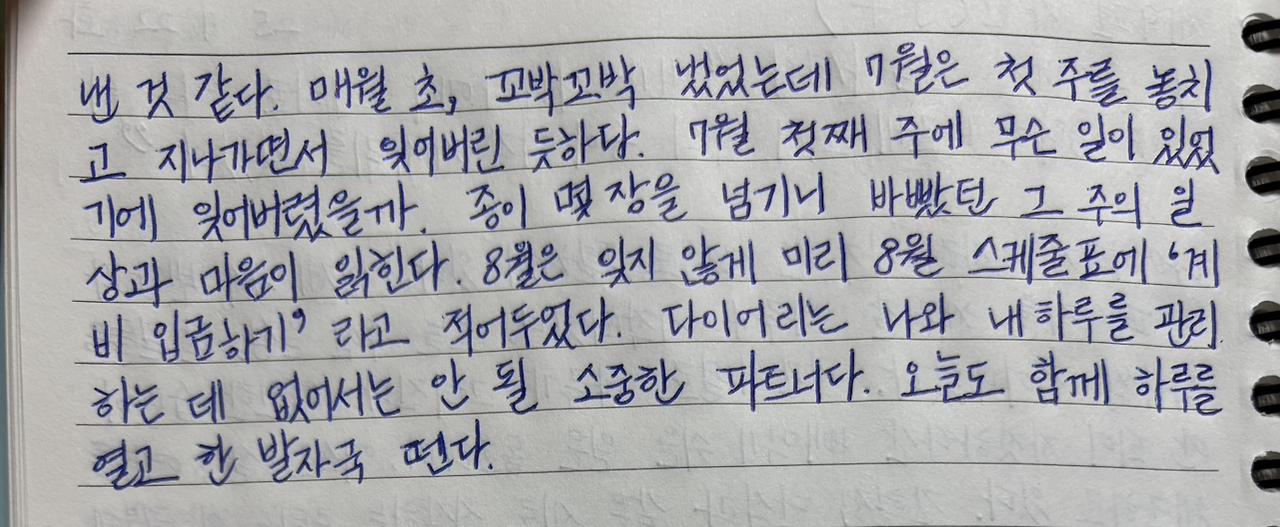 낸 것 같다. 매월 초, 꼬박꼬박 냈었는데 7월은 첫 주를 놓치
고 지나가면서 잊어버린 듯하다. 7월 첫째 주에 무슨 일이 있었
기에 잊어버렸을까. 종이 몇 장을 넘기니 바빴던 그 주의 일
상과 마음이 읽힌다. 8월은 잊지 않게 미리 8월 스케줄표에 '계
비 입금하기' 라고 적어두었다. 다이어리는 나와 내 하루를 관리
하는 데 없어서는 안 될 소중한 파트너다. 오늘도 함께 하루를
열고 한 발자국 뗀다.